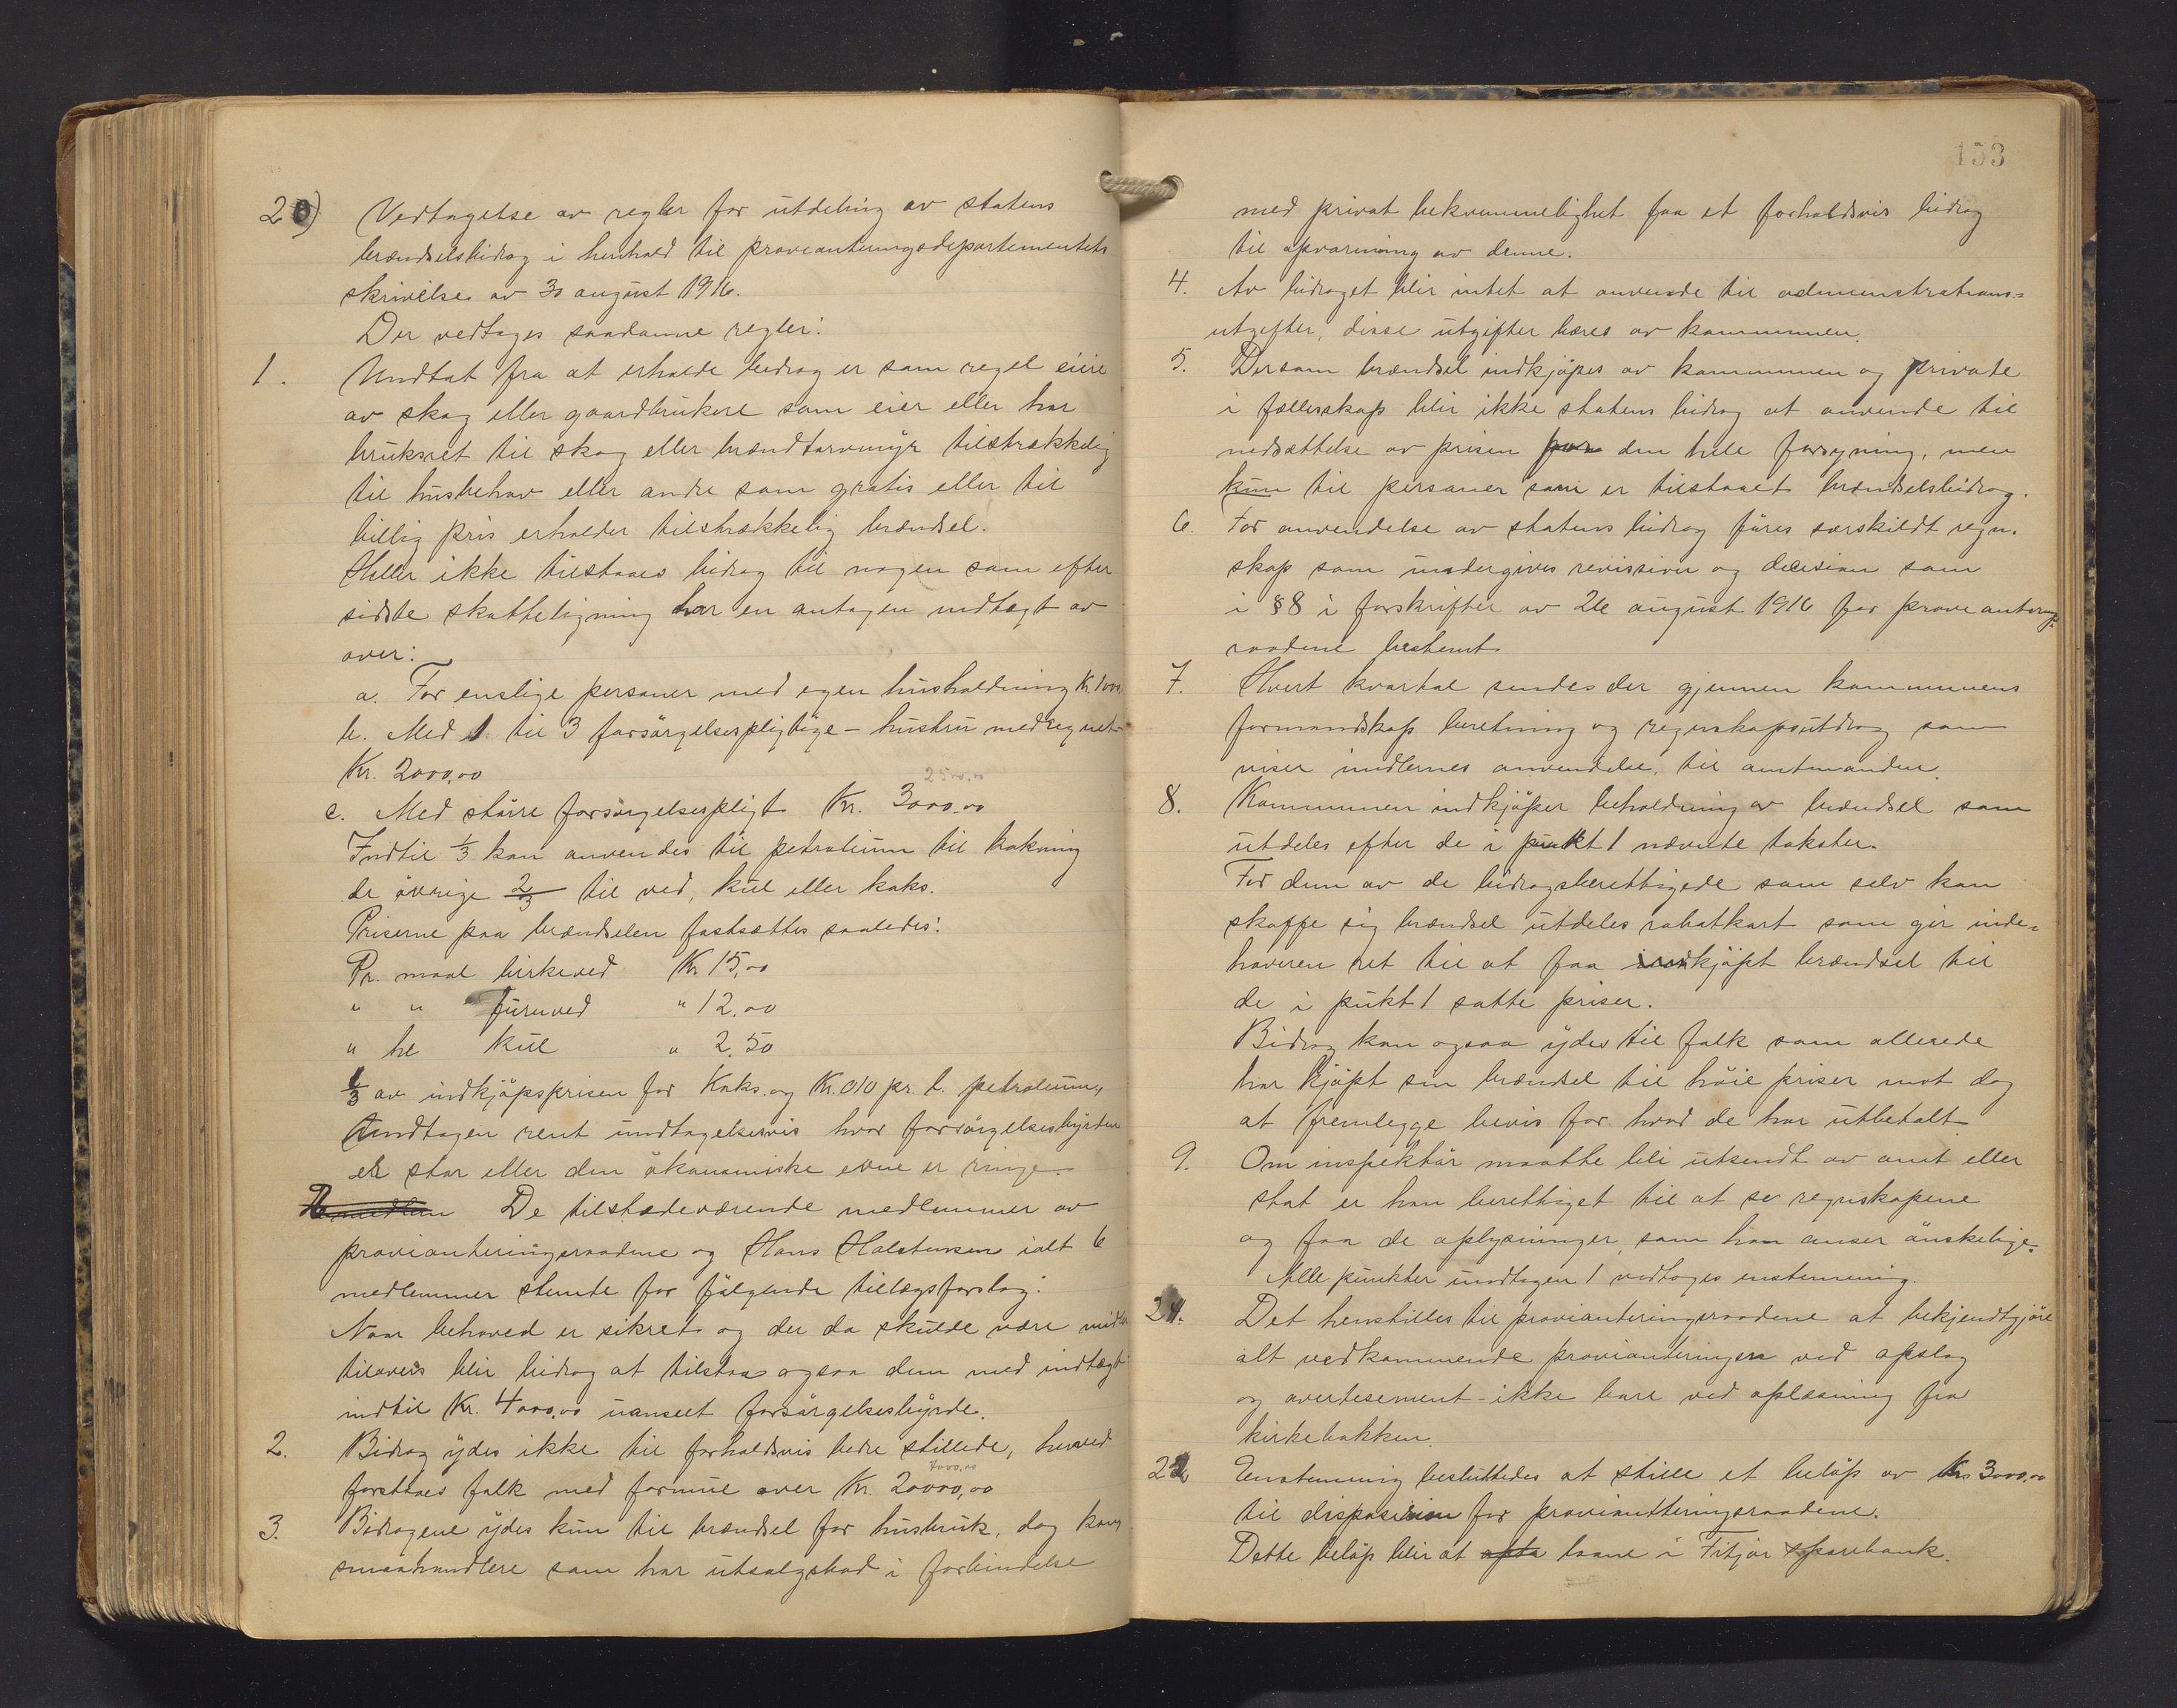 20) Vedtagelse av regler for utdeling av statens
brændselsbidrag i henhold til provianteringsdepartementets
skrivelse av 30 august 1916.
Der vedtages saadanne regler:
1. Undtat fra at erholde bidrag er som regel eiere
av skog eller gaardbrukere som eier eller har
bruksret til skog eller brændtorvmyr tilstrækkelig
til husbehov eller andre som gratis eller til
billig pris erholder tilstrækkelig brændsel.
Heller ikke tilstaaes bidrag til nogen som efter
sidste skatteligning har en antagen indtægt av
over:
a. For enslige personer med egen husholdning Kr. 1000
b. Med 1 til 3 forsørgelsespligtige - hustru medregnet -
Kr. 2000,00
2500,00
c. Med större forsörgelsespligt Kr. 3000,00
Indtil 1/3 kan anvendes til petroleum til kokning
de övrige 2/3 til ved, kul eller koks.
Priserne paa brændselen fastsættes saaledes:
Pr. maal birkeved Kr 15,00
" " furuved " 12,00
" hl kul " 2,50
1/3 av indkjöpsprisen for Koks og Kr. 010 pr. l. petroleum,
undtagen rent undtagelsesvis hvor forsörgelsesbyrden
er stor eller den ökonomiske evne er ringe.
De tilstedeværende medlemmer av
provianteringsraadene og Hans Halstensen ialt 6
medlemmer stemte for fölgende tillægsforslag:
Naar behovet er sikret og der da skulde være midler
tilovers blir bidrag at tilstaa ogsaa dem med indtægt
indtil Kr. 4000,00 uanseet forsörgelsesbyrde.
2. Bidrag ydes ikke til forholdsvis bedre stillede, herved
7000,00
forstaaes folk med formue over Kr. 20000,00
3. Bidragene ydes kun til brændsel for husbruk, dog kan
smaahandlere som har utsalgsbod i forbindelse
153
med privat bekvemmelighet faa et forholdsvis bidrag
til opvarmning av denne.
4. Av bidraget blir intet at anvende til administrations=
utgifter, disse utgifter bæres av kommunen.
5. Dersom brændsel indkjöpes av kommunen og private
i fællesskap blir ikke statens bidrag at anvende til
nedsættelse av prisen paa den hele forsyning, men
kun til personer som er tilstaaet brændselsbidrag.
6. For anvendelse av statens bidrag föres særskildt regn=
skap som undergives revission og decision som
i § 8 i forskrifter av 26 august 1916 for provianterings=
raadene bestemt
7. Hvert kvartal sendes der gjennem kommunens
formandskap beretning og regnskapsutdrag som
viser midlernes anvendelse, til amtmanden.
8. Kommunen indkjöper beholdning av brændsel som
utdeles efter de i punkt 1 nævnte takster.
For dem av de bidragsberettigede som selv kan
skaffe sig brændsel utdeles rabatkart som gir inde=
haveren ret til at faa indkjöpt brændsel til
de i pukt 1 satte priser.
Bidrag kan ogsaa ydes til folk som allerede
har kjöpt sin brændsel til höie priser mot dog
at fremlegge bevis for hvad de har utbetalt
9. Om inspektör maatte bli utsendt av amt eller
stat er han berettiget til at se regnskapene
og faa de oplysninger som han anser önskelige.
Alle punkter undtagen 1 vedtoges enstemmig.
21. Det henstilles til provianteringsraadene at bekjendtgjöre
alt vedkommende provianteringen ved opslag
og avertesement - ikke bare ved oplæsning fra
kirkebakken.
22 Enstemmig besluttedes at stille et belöp av Kr. 3000,00
til disposision for provianteringsraadene.
Dette belöp blir at opta laane i Fitjar sparebank.